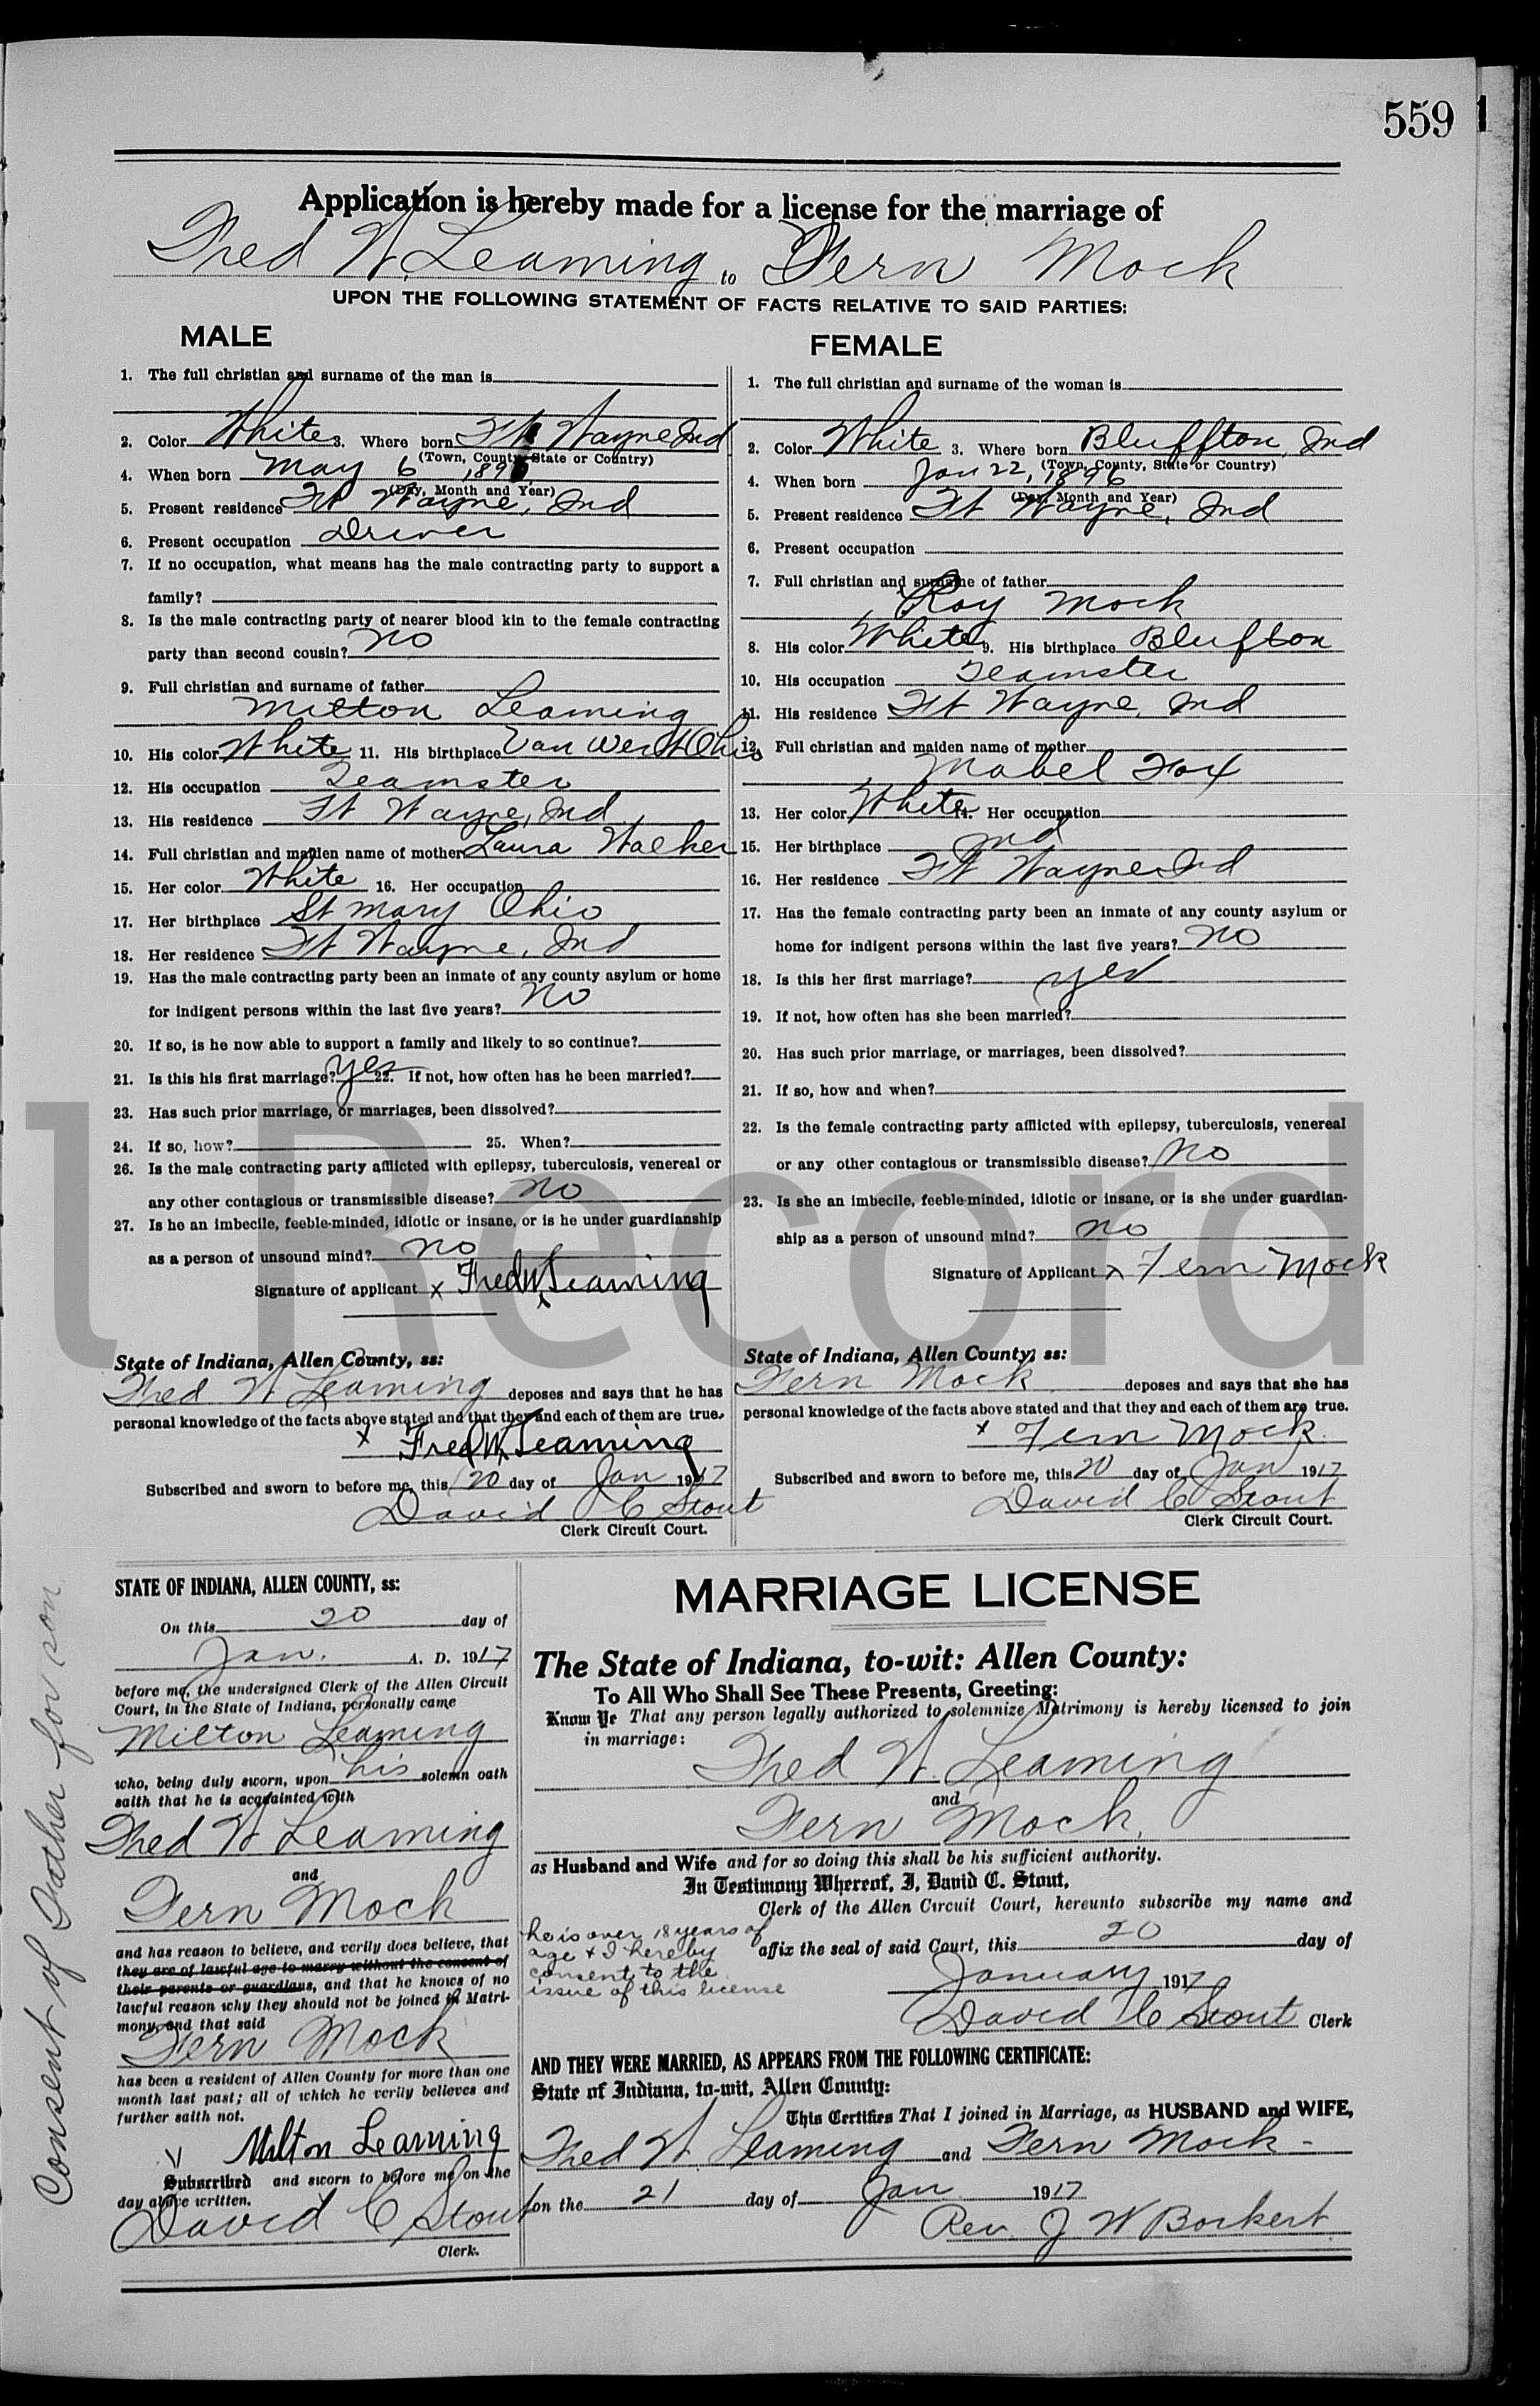 559
Application is hereby made for a license for the marriage of
Fred W. Leaming to Fern Mock
UPON THE FOLLOWING STATEMENT OF FACTS RELATIVE TO SAID PARTIES:
MALE
1. The full christian and surname of the man is
2. Color White 3. Where born Ft Wayne Ind
(Town, County, State or Country)
4. When born May 6 189
(Day, Month and Year)
5. Present residence Ft Wayne, Ind
6. Present occupation Driver
7. If no occupation, what means has the male contracting party to support a
family?
8. Is the male contracting party of nearer blood kin to the female contracting
party than second cousin? no
9. Full christian and surname of father
Milton Leaming
10. His color White 11. His birthplace Van Wert Ohio
12. His occupation Teamster
13. His residence Ft Wayne, Ind
14. Full christian and maiden name of mother Laura Walker
15. Her color White 16. Her occupation
17. Her birthplace St Mary Ohio
18. Her residence Ft Wayne, Ind
19. Has the male contracting party been an inmate of any county asylum or home
for indigent persons within the last five years? no
20. If so, is he now able to support a family and likely to so continue?
21. Is this his first marriage? yes 22. If not, how often has he been married?
23. Has such prior marriage, or marriages, been dissolved?
24. If so, how? 25. When?
26. Is the male contracting party afflicted with epilepsy, tuberculosis, venereal or
any other contagious or transmissible disease? no
27. Is he an imbecile, feeble-minded, idiotic or insane, or is he under guardianship
as a person of unsound mind? no
Signature of applicant x Fred W Leaming
State of Indiana, Allen County, ss:
Fred W Leaming deposes and says that he has
personal knowledge of the facts above stated and that they and each of them are true.
x Fred W Leaming
Subscribed and sworn to before me, this 20 day of Jan 1917
David C Stout
Clerk Circuit Court.
FEMALE
1. The full christian and surname of the woman is
2. Color White 3. Where born Bluffton, Ind
(Town, County, State or Country)
4. When born Jan 22, 1896
(Day, Month and Year)
5. Present residence Ft Wayne, Ind
6. Present occupation
7. Full christian and surname of father
Roy Mock
8. His color White 9. His birthplace Blufton
10. His occupation Teamster
11. His residence Ft Wayne, Ind
12. Full christian and maiden name of mother
Mabel Fox
13. Her color White 14. Her occupation
15. Her birthplace Ind
16. Her residence Ft Wayne Ind
17. Has the female contracting party been an inmate of any county asylum or
home for indigent persons within the last five years? no
18. Is this her first marriage? yes
19. If not, how often has she been married?
20. Has such prior marriage, or marriages, been dissolved?
21. If so, how and when?
22. Is the female contracting party afflicted with epilepsy, tuberculosis, venereal
or any other contagious or transmissible disease? no
23. Is she an imbecile, feeble-minded, idiotic or insane, or is she under guardian-
ship as a person of unsound mind? no
Signature of Applicant x Fern Mock
State of Indiana, Allen County, ss:
Fern Mock deposes and says that she has
personal knowledge of the facts above stated and that they and each of them are true.
x Fern Mock
Subscribed and sworn to before me, this 20 day of Jan 1917
David C Stout
Clerk Circuit Court.
l Record
Consent of Father for son
STATE OF INDIANA, ALLEN COUNTY, ss:
On this 20 day of
Jan. A. D. 1917
before me, the undersigned Clerk of the Allen Circuit
Court, in the State of Indiana, personally came
Milton Leaming
who, being duly sworn, upon his solemn oath
saith that he is acquainted with
Fred W Leaming
and
Fern Mock
and has reason to believe, and verily does believe, that
they are of lawful age to marry without the consent of
their parents or guardians, and that he knows of no
lawful reason why they should not be joined in Matri-
mony, and that said
Fern Mock
has been a resident of Allen County for more than one
month last past; all of which he verily believes and
further saith not.
Milton Leaming
Subscribed and sworn to before me on the
day above written.
David C Stout
Clerk.
MARRIAGE LICENSE
The State of Indiana, to-wit: Allen County:
To All Who Shall See These Presents, Greeting:
Know Ye That any person legally authorized to solemnize Matrimony is hereby licensed to join
in marriage:
Fred W. Leaming
and
Fern Mock.
as Husband and Wife and for so doing this shall be his sufficient authority.
In Testimony Whereof, I, David C. Stout,
Clerk of the Allen Circuit Court, hereunto subscribe my name and
affix the seal of said Court, this 20 day of
January 1917
David C Stout Clerk
he is over 18 years of
age & I hereby
consent to the
issue of this license
AND THEY WERE MARRIED, AS APPEARS FROM THE FOLLOWING CERTIFICATE:
State of Indiana, to-wit, Allen County:
This Certifies That I joined in Marriage, as HUSBAND and WIFE,
Fred W. Leaming and Fern Mock
on the 21 day of Jan 1917
Rev. J W Borkert